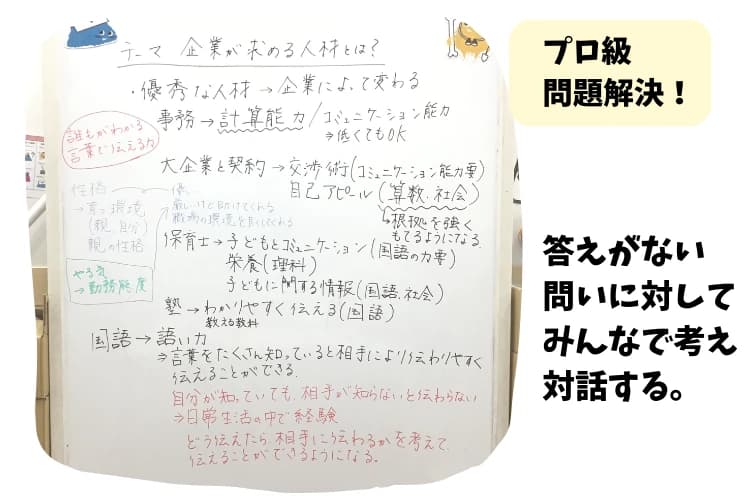 テーマ 企業が求める人材とは?
・優秀な人材→企業によって変わる
事務→計算能力/コミュニケーション能力
⇒低くてもOK
誰もがわかる
言葉で伝える力
大企業と契約→交渉術(コミュニケーション能力要)
自己アピール(算数、社会)
↳根拠を強く
もてるようになる。
性格
→育つ環境
(親、自分)
親の性格
優
厳しいけど助けてくれる
職場の環境を良くしてくれる
やる気
→勤務態度
保育士→子どもとコミュニケーション(国語の力要)
栄養(理科)
子どもに関する情報(国語、社会)
塾→わかりやすく伝える(国語)
教える教科
国語→語い力
⇒言葉をたくさん知っていると相手により伝わりやすく
伝えることができる。
自分が知っていても、相手が知らないと伝わらない
⇒日常生活の中で経験
どう伝えたら、相手に伝わるかを考えて、
伝えることができるようになる。
プロ級
問題解決!
答えがない
問いに対して
みんなで考え
対話する。